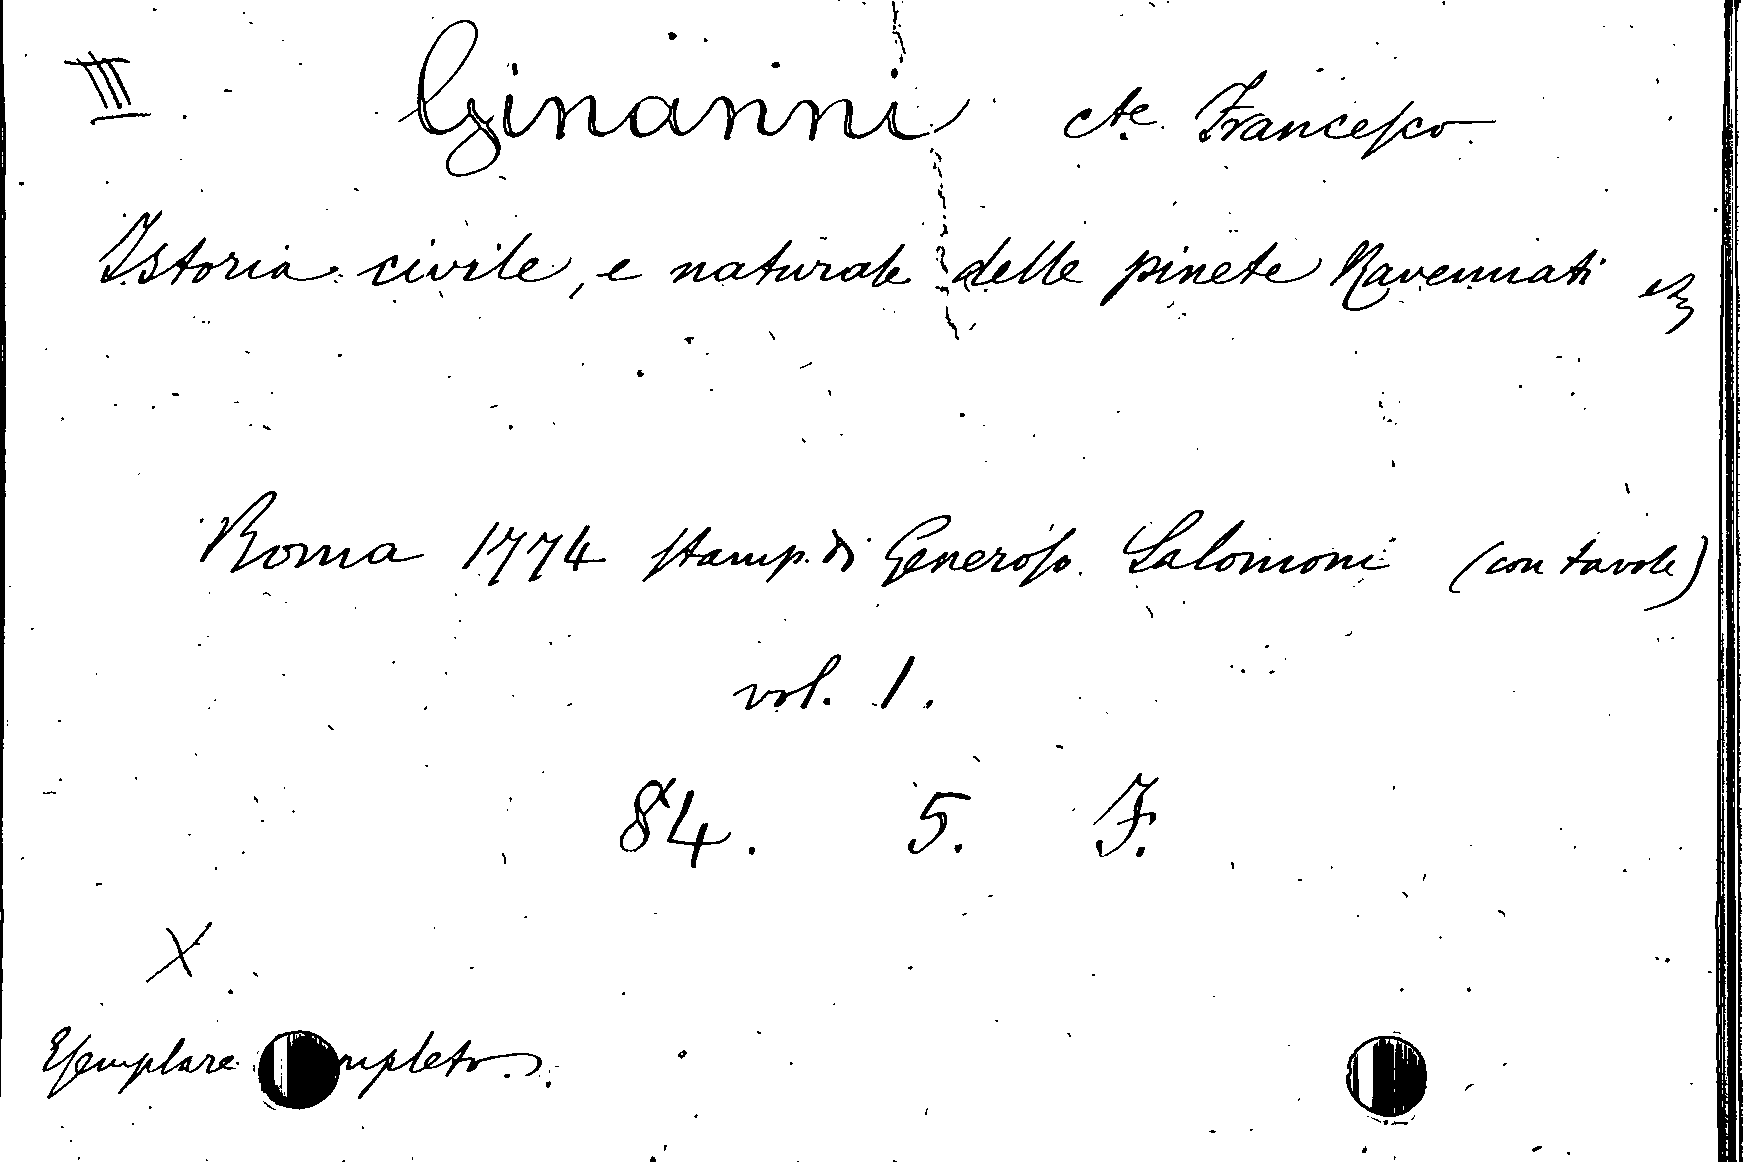 III Ginanni cte. Francesco
Istoria civile, e naturale delle pinete Ravennati
Roma 1774 stamp. di Generoso Salomoni (con tavole)
vol. 1.
84. 5. F.
X
Esemplare